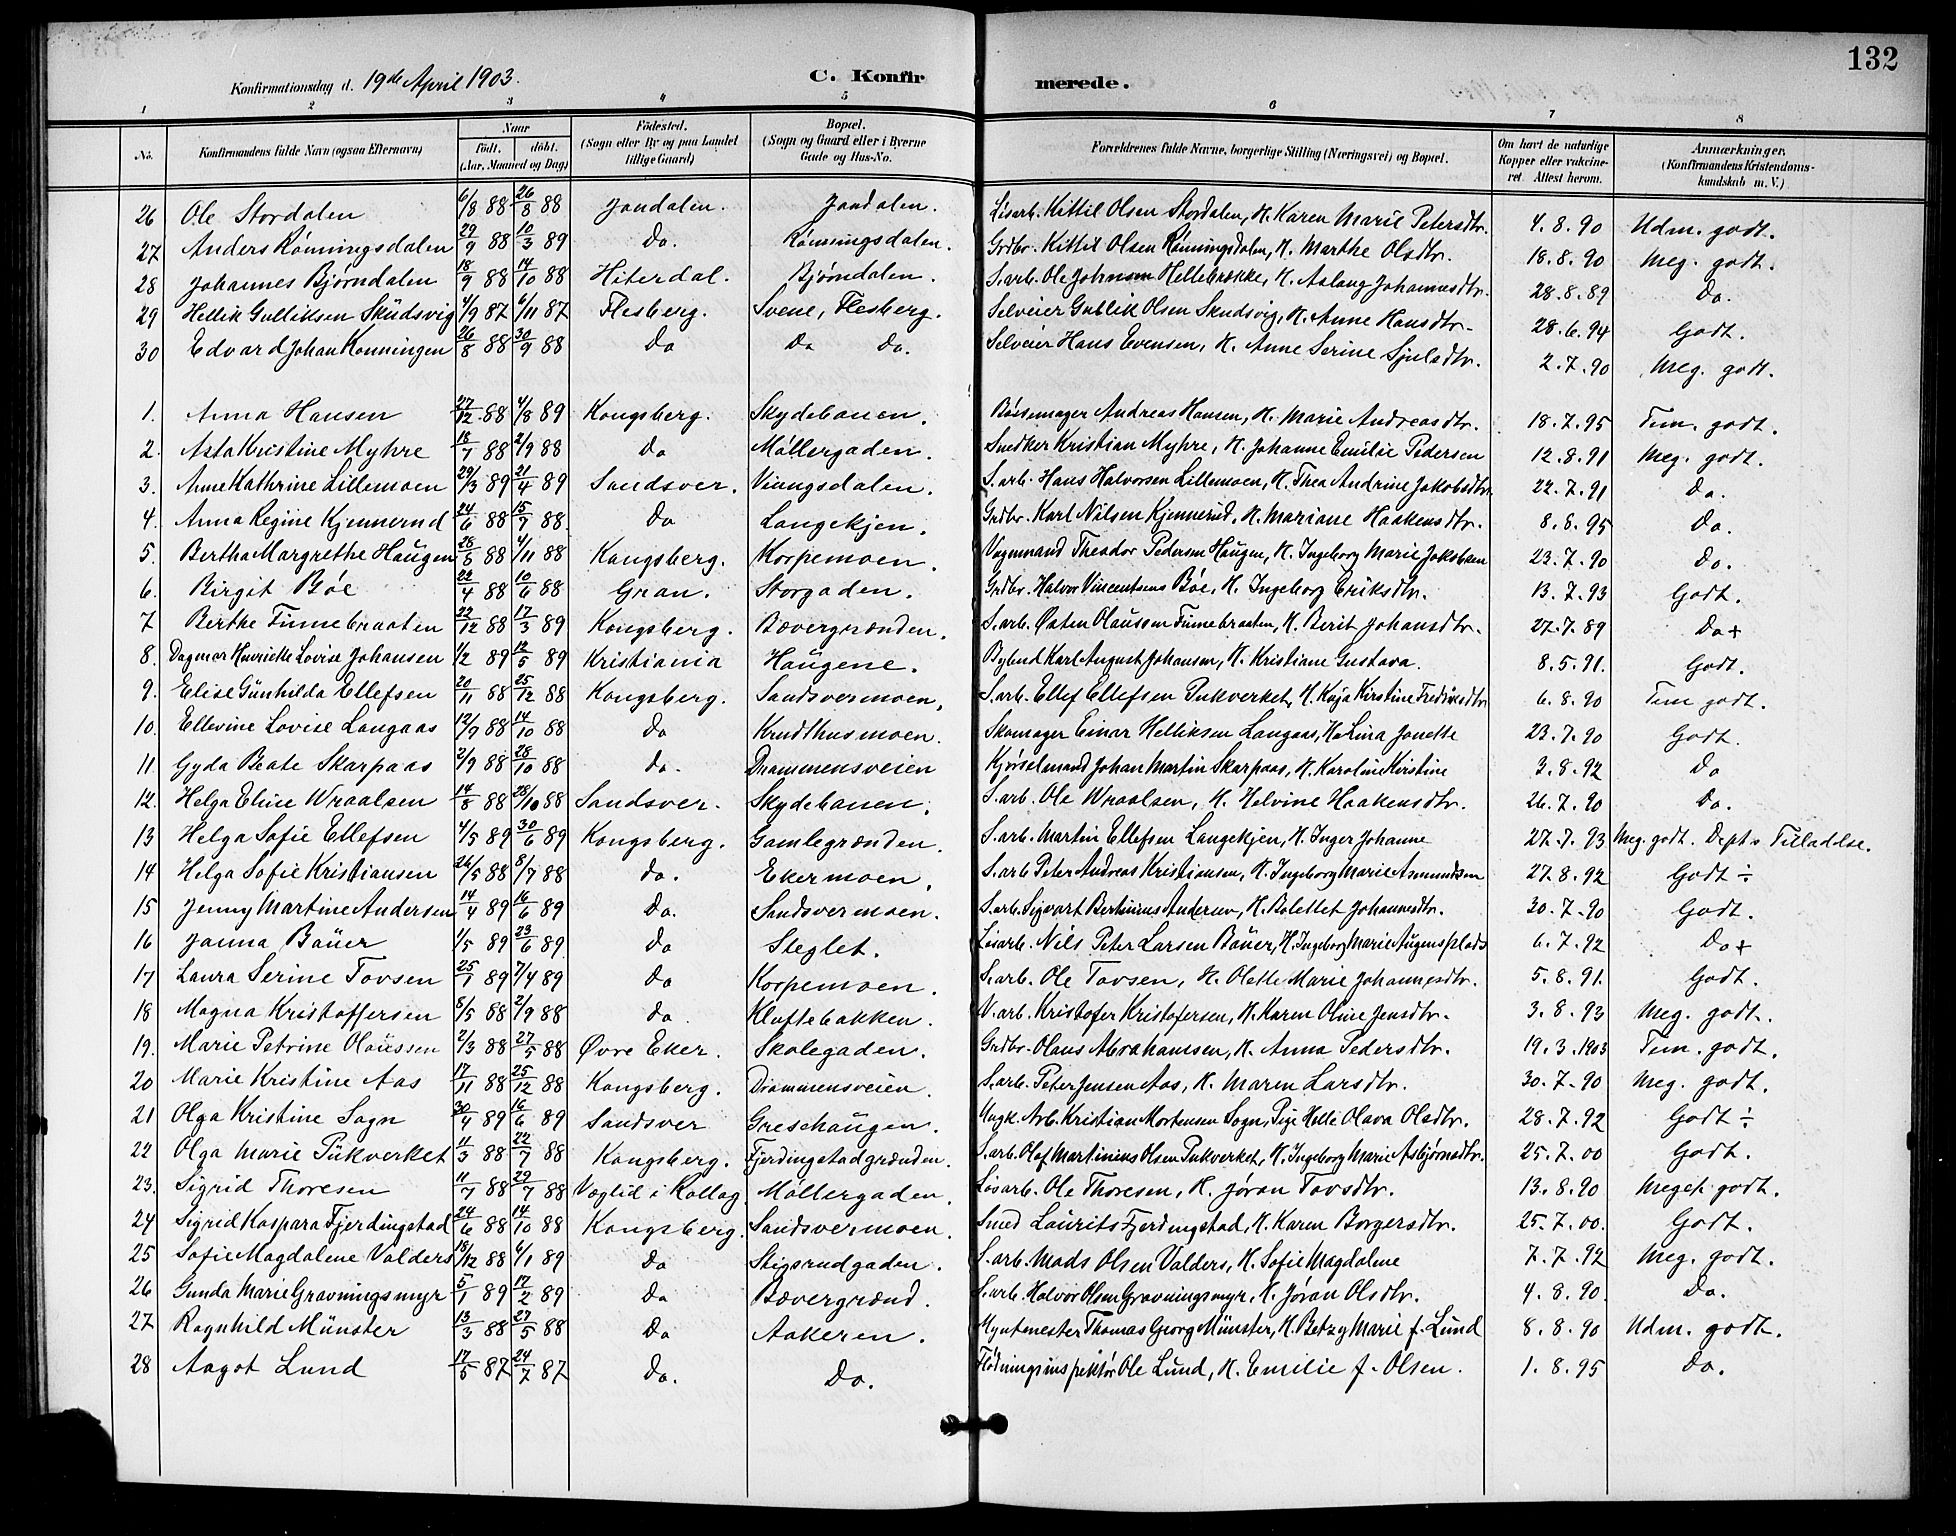 132
Konfirmationsdag d. 19de April 1903. C. Konfirmerede.
1 2 3 4 5 6 7 8
No. Konfirmandens fulde Navn (ogsaa Efternavn) Naar födt. döbt. (Aar, Maaned og Dag) Födested. (Sogn eller By og paa Landet tillige Gaard) Bopæl. (Sogn og Gaard eller i Byerne Gade og Hus-No. Forældrenes fulde Navne, borgerlige Stilling (Næringsvei) og Bopæl. Om havt de naturlige Kopper eller vakcineret. Attest herom. Anmærkninger, (Konfirmandens Kristendomskundskab m. V.)
26 Ole Stordalen 6/8 88 26/8 88 Jondalen. Jondalen. Løsarb. Kittil Olsen Stordalen, H. Karen Marie Petersdtr. 4.8.90 Udm. godt.
27 Anders Rönningsdalen 29/9 88 10/3 89 Do. Rönningsdalen. Grdbr. Kittil Olsen Rönningsdalen, H. Marthe Olsdtr. 18.8.90 Meg. godt.
28 Johannes Bjørndalen 18/9 88 14/10 88 Hiterdal. Bjørndalen. S.arb. Ole Johnsen Hellebrække, H. Aslaug Johannesdtr. 28.8.89 Do.
29 Hellik Gulliksen Skudsvig 4/9 87 6/11 87 Flesberg. Svene, Flesberg. Selveier Gullik Olsen Skudsvig, H. Anne Hansdtr. 28.6.94 Godt.
30 Edvard Johan Konningen 26/8 88 30/9 88 Do Do Do. Selveier Hans Evensen, H. Anne Serine Sjulsdtr. 2.7.90 Meg. godt.
1. Anna Hansen 27/12 88 4/8 89 Kongsberg. Skydebanen. Bössemager Andreas Hansen, H. Marie Andreasdtr. 18.7.95 Tem. godt.
2. Asta Kristine Myhre 18/7 88 2/9 88 Do Möllergaden. Snedker Kristian Myhre, H. Johanne Emilie Pedersen 12.8.91 Meg. godt.
3. Anne Kathrine Lillemoen 29/3 89 21/4 89 Sandsver. Viungsdalen. S.arb. Hans Halvorsen Lillemoen, H. Thea Andrine Jakobsdtr. 22.7.91 Do.
4. Anna Regine Kjennerud 24/6 88 15/7 88. Do Langekjen. Grdbr. Karl Nilsen Kjennerud, H. Mariane Haakensdtr. 8.8.95 Do.
5. Bertha Margrethe Haugen 28/5 88 4/11 88 Kongsberg. Korpemoen. Vognmand Theodor Pedersen Haugen, H. Ingeborg Marie Jakobsen 23.7.90 Do.
6. Birgit Böe 22/4 88 10/6 88 Gran. Storgaden. Grdbr. Halvor Vincentsens Böe, H. Ingeborg Eriksdtr. 13.7.93 Godt.
7 Berthe Finnebraaten 22/12 88 17/3 89 Kongsberg. Bævergrænden. S.arb. Østen Olaussen Finnebraaten, H. Berit Johansdtr. 27.7.89 Do +
8. Dagmar Henrikke Lovise Johansen 1/2 89 12/5 89 Kristiania Haugene. Bybud Karl August Johansen, H. Kristiane Gustava. 8.5.91. Godt.
9. Elise Gunhilda Ellefsen 20/11 88 25/12 88 Kongsberg. Sandsvermoen. S.arb. Ellef Ellefsen Pukverket, H. Kaja Kirstine Fredriksdtr 6.8.90 Tem godt.
10. Ellevine Lovise Langaas 12/9 88 14/10 88 Do Krudthusmoen. Skomager Einar Helliksen Langaas, H. Lina Jonette 23.7.90 Godt.
11. Gyda Beate Skarpaas 2/9 88 28/10 88 Do. Drammensveien Kjörselmand Johan Martin Skarpaas, H. Karoline Kristine 3.8.92 Do
12. Helga Elise Wraalsen 14/8 88 28/10 88 Sandsver. Skydebanen. S.arb. Ole Wraalsen, H. Helvine Haakensdtr. 26.7.90 Do.
13 Helga Sofie Ellefsen 4/5 89 30/6 89 Kongsberg. Gamlegrænden. S.arb. Martin Ellefsen Langekjen, H. Inger Johanne 27.7.93 Meg. godt. Dept's Tilladelse.
14 Helga Sofie Kristiansen 26/5 88 8/7 88 Do. Ekermoen. S.arb. Peter Andreas Kristiansen, H. Ingeborg Marie Asmundsen 27.8.92 Godt ÷
15 Jenny Martine Andersen 14/4 89 16/6 89 Do. Sandsvermoen. S.arb. Sigvart Bertinius Andersen, H. Bolettet Johannesdtr. 30.7.90 Godt.
16 Janna Bauer 1/5 89 23/6 89 Do Steglet. Løsarb. Nils Peter Larsen Bauer, H. Ingeborg Marie Augensplads 6.7.92 Do +
17 Laura Serine Tovsen 25/1 89 7/4 89 Do Korpemoen. S.arb. Ole Tovsen, H. Olette Marie Johannesdtr. 5.8.91. Godt.
18 Magna Kristoffersen 8/5 88 2/9 88 Do Kloftebakken. V.arb. Kristofer Kristofersen, H. Karen Oline Jensdtr. 3.8.93 Meg. godt.
19. Marie Petrine Olaussen 2/3 88 27/5 88 Øvre Eker. Skolegaden. Grdbr. Olaus Abrahamsen, H. Anna Pedersdtr. 19.3.1903 Tem. godt.
20 Marie Kristine Aas 17/11 88 25/12 88 Kongsberg. Drammensveien. S.arb. Peter Jensen Aas, H. Maren Larsdtr. 30.7.90 Meg. godt.
21 Olga Kristine Sogn 30/4 89 16/6 89 Sandsver Greschaugen. Ungk. Arb. Kristian Mortensen Sogn, Pige Helle Olava Olsdtr. 28.7.92 Godt ÷
22 Olga Marie Pukverket 11/3 88 22/7 88 Kongsberg. Fjerdingstadgrænden. S.arb. Olaf Martinius Olsen Pukverket, H. Ingeborg Marie Asbjørnsdtr. 25.7.00 Godt.
23. Sigrid Thoresen 11/7 88 29/7 88 Væglid i Rollag Möllergaden. Løsarb. Ole Thoresen, H. Jøran Tovsdtr. 13.8.90 Meget godt.
24 Sigrid Kaspara Fjerdingstad 24/6 88 14/10 88 Kongsberg. Sandsvermoen. Smed Laurits Fjerdingstad, H. Karen Borgersdtr. 25.7.00. Godt.
25 Sofie Magdalene Valders 18/12 88 6/1 89 Do Stigsrudgaden. S.arb. Mads Olsen Valders, H. Sofie Magdalene 7.7.92 Meg. godt.
26 Gunda Marie Gravningsmyr 5/1 89 17/2 89 Do Bævergrænd. S.arb. Halvor Olsen Gravningsmyr, H. Jøran Olsdtr. 4.8.90. Do.
27 Ragnhild Münster 13/3 88 27/5 88 Do Aakeren. Myntmester Thomas Georg Münster, H. Betzy Marie f. Lund 8.8.90 Udm. godt.
28 Aagot Lund 17/5 87 24/7 87 Do. Do. Flödningsinspektör Ole Lund, H. Emilie f. Olsen. 1.8.95 Do.